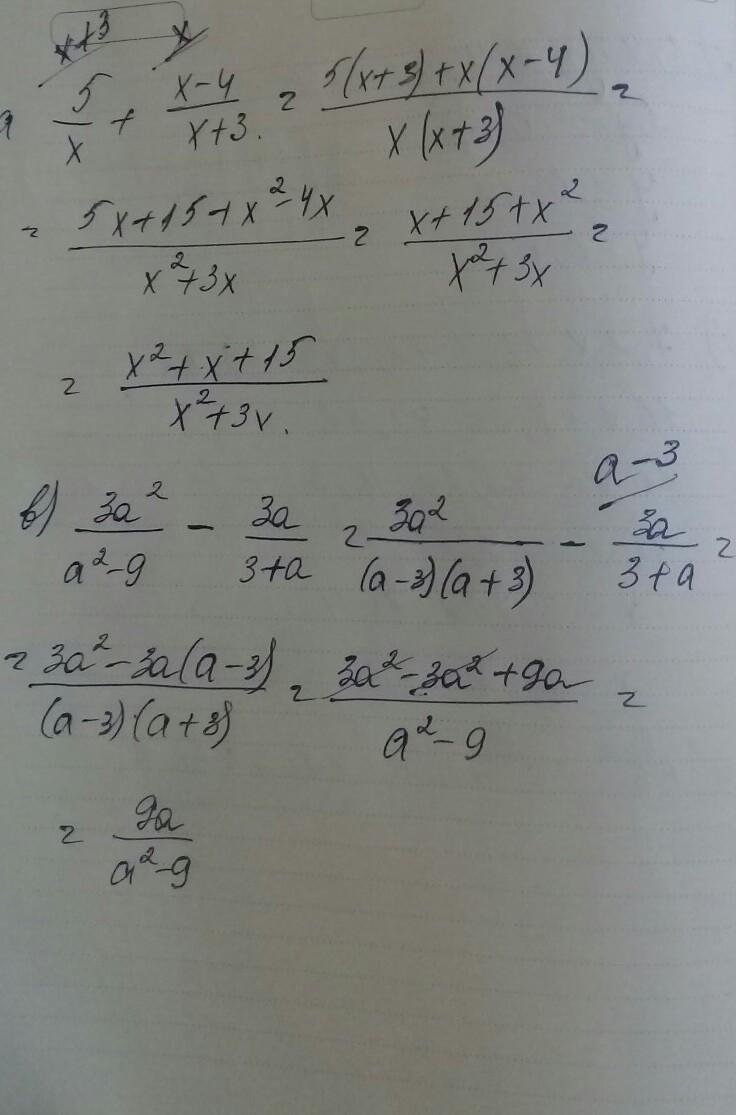 x+3 x
a 5/x + (x-4)/(x+3) = (5(x+3)+x(x-4))/(x(x+3)) =
= (5x+15+x²-4x)/(x²+3x) = (x+15+x²)/(x²+3x) =
= (x²+x+15)/(x²+3x).
a-3
в) 3a²/(a²-9) - 3a/(3+a) = 3a²/((a-3)(a+3)) - 3a/(3+a) =
= (3a²-3a(a-3))/((a-3)(a+3)) = (3a²-3a²+9a)/(a²-9) =
= 9a/(a²-9)